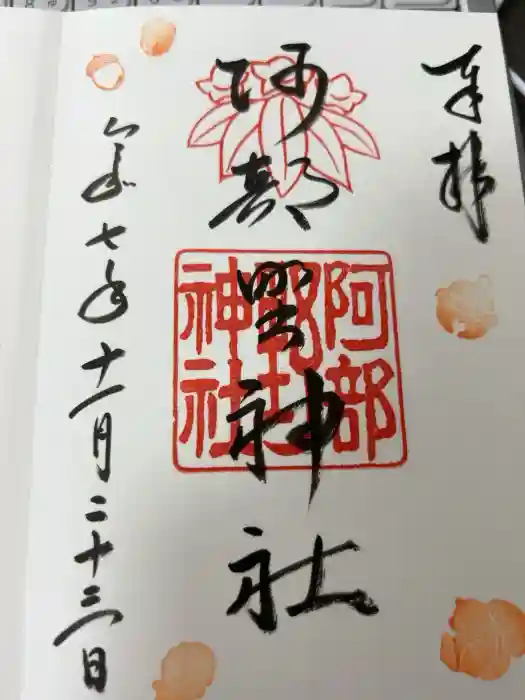 奉拝
阿部野神社
阿部
野社
神社
令和七年十一月二十三日